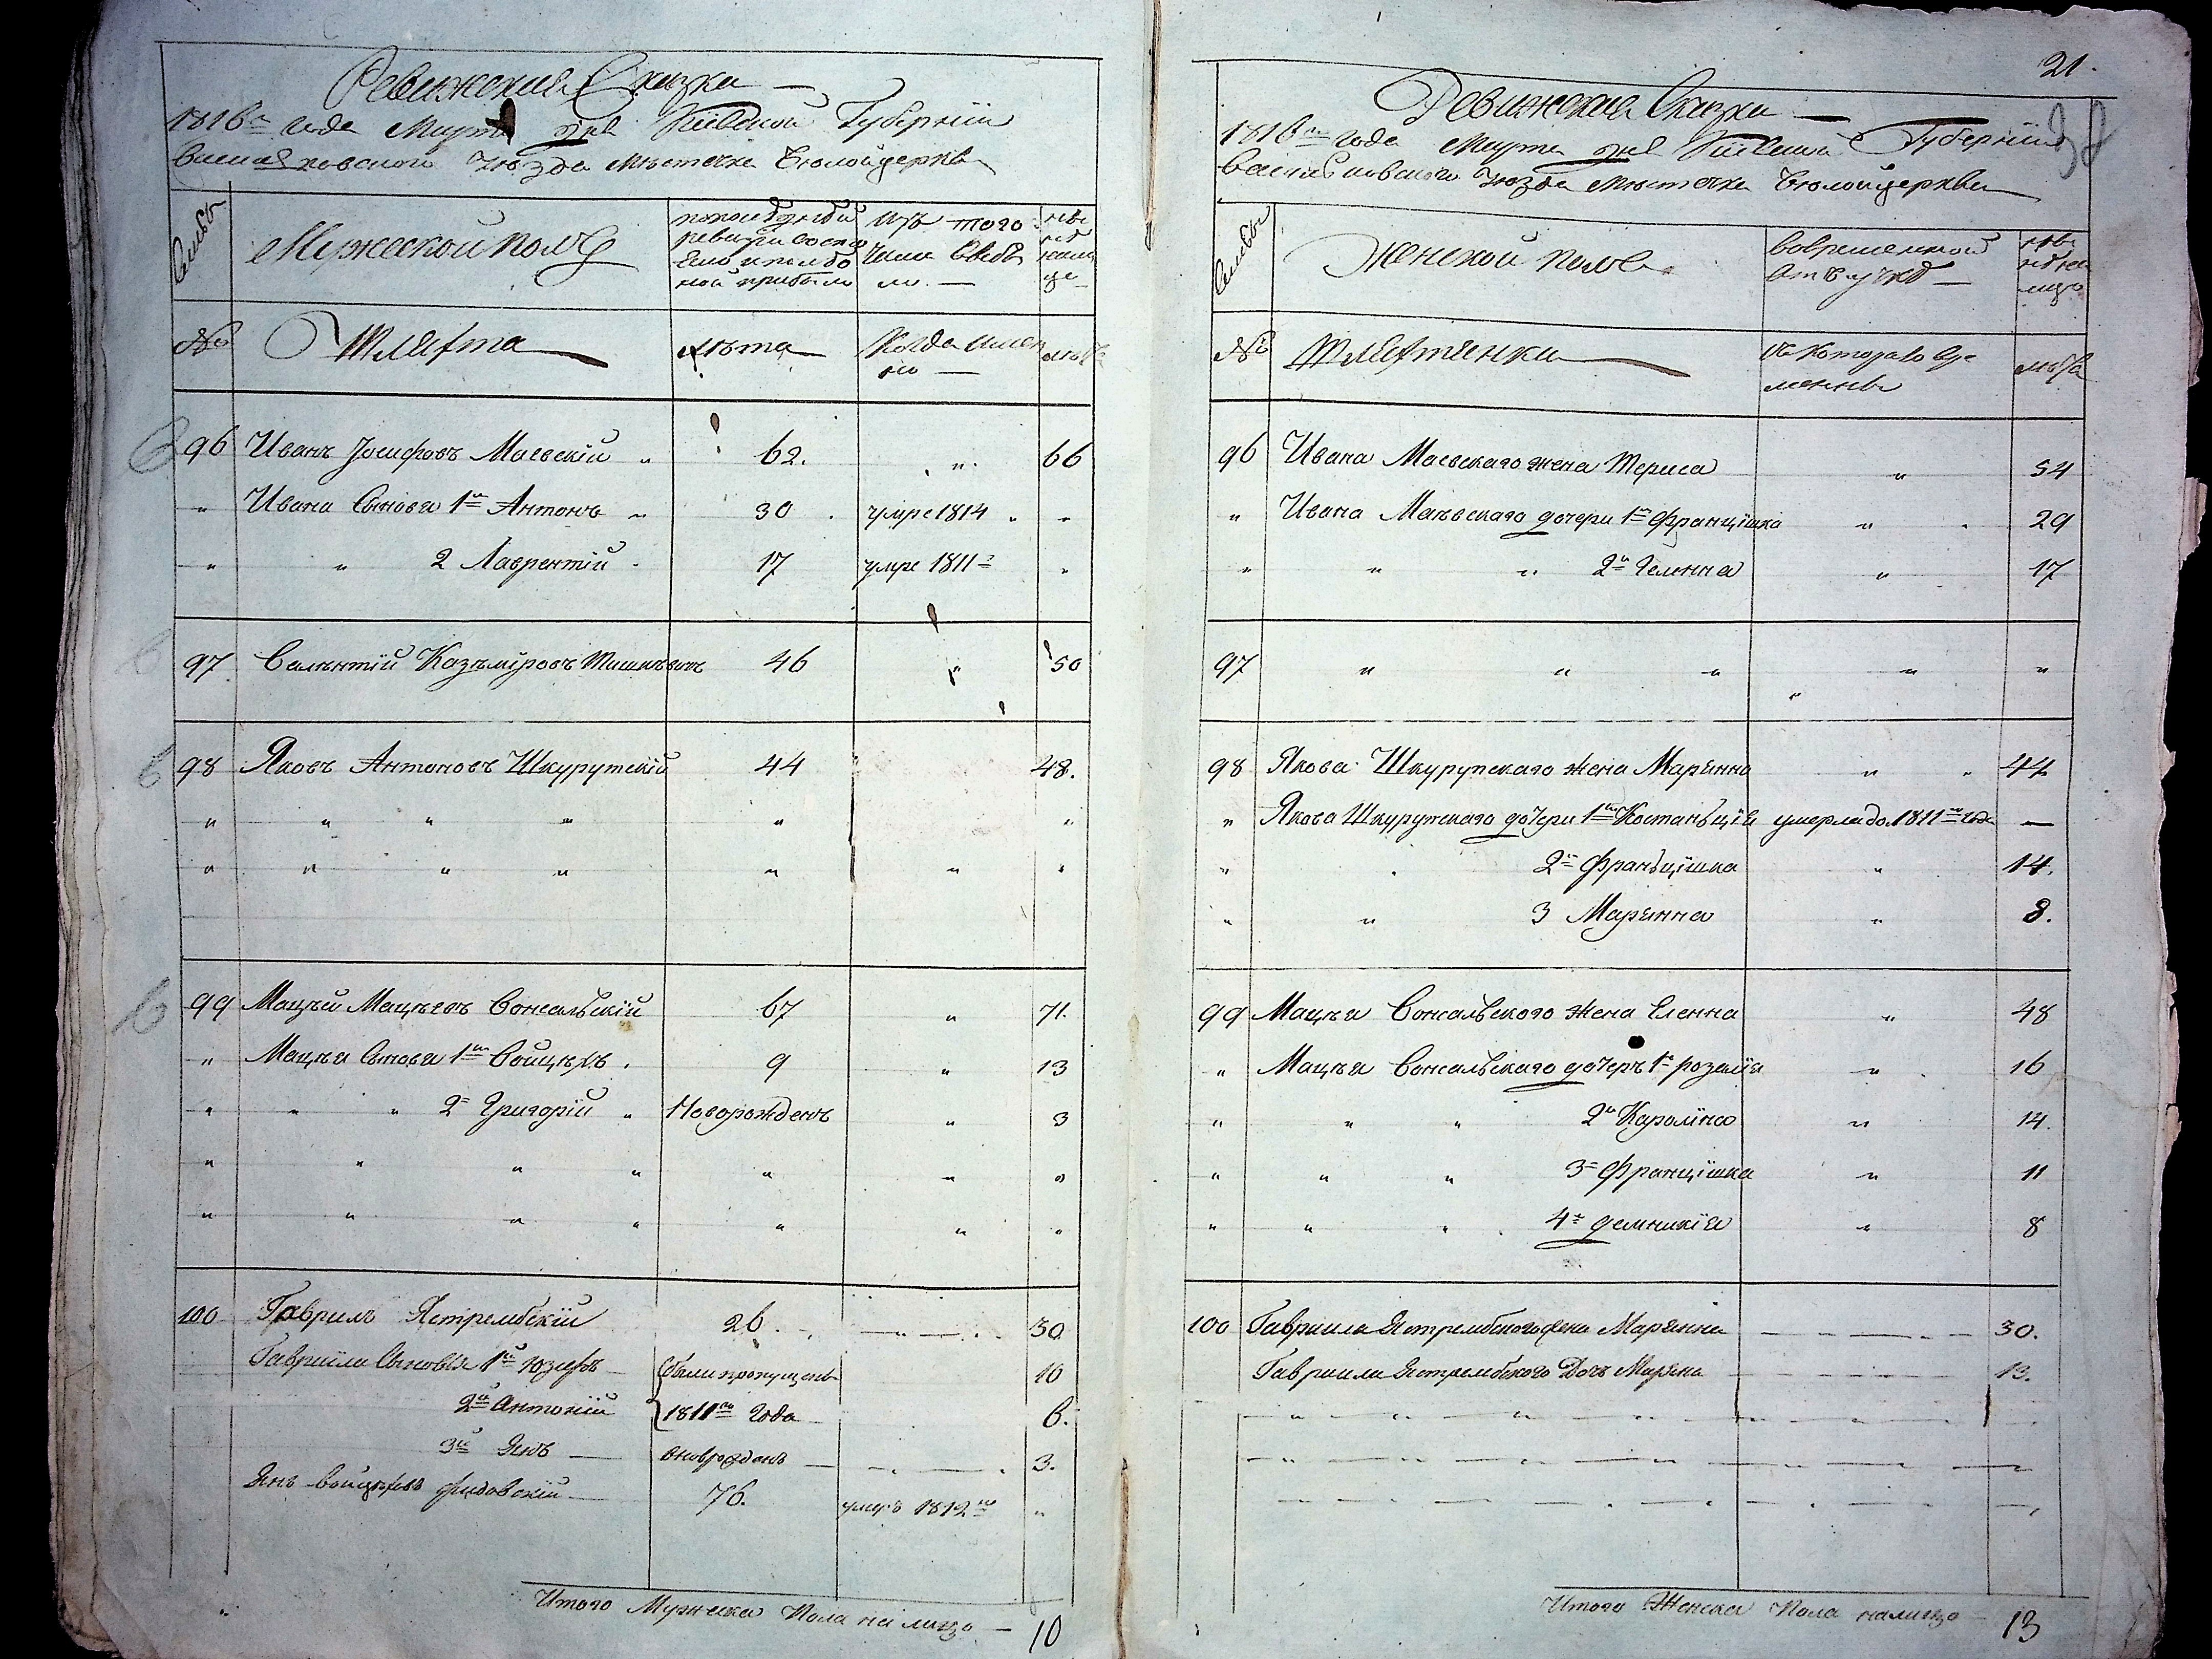 Ревижския Сказки
1816го года Марта дня Киевской Губернии
Васильковского уезда местечка Белойцеркви
Семьи
Мужеской полъ
по последней
ревизіи состо
яло и после
оной прибыло
изъ того
числа выбы
ло
ныне
на лице
№
Шляхта
лета
Когда имен
но
лета
96 Иванъ Іосифовъ Маевскій 62. 66
Ивана Сыновя 1й Антонъ 30 умре 1814
2 Лаврентій 17 умре 1811
97 Валентій Казиміровъ 46 50
98 Яковъ Антоновъ Шкурупскій 44 48.
99 Мацей Мацеевъ Вонсальскій 67 71.
Мацея Сыновя 1й Войцехъ 9 13
2й Григорій Новорожденъ 3
100 Гаврилъ Ястрембскій 26. 30
Гавриила Сыновья 1й Юзефъ были пропущены 10
2й Антоній 1811го Года 6.
3й Янъ новорожденъ 3.
Янъ Войцеховъ 76. умеръ 1812го
Итого Мужеска Пола на лицо 10
21.
38
Ревижския Сказки
1816го года Марта дня Киевской Губернии
Васильковского уезда местечка Белойцеркви
Семьи
Женской полъ
во временной
отлучке
ныне
на лицо
№
Шляхтянки
Съ которого вре
мени
лета
96 Ивана Маевскаго жена Териса 54
Ивана Маевскаго дочери 1я Францишка 29
2я Гелена 17
97
98 Якова Шкурупскаго жена Марянна 44
Якова Шкурупскаго дочери 1я Костанція умерла до 1811го года
2я Францишка 14.
3 Марянна 8.
99 Мацея Вонсальского жена Еленна 48
Мацея Вонсальскаго дочеръ 1я розалія 16
2я Кароліна 14.
3я Францішка 11
4я 8
100 Гавриила Ястрембского жена Марянна 30.
Гавриила Ястрембского Дочь Маряна 13.
Итого Женска Пола на лицо 13